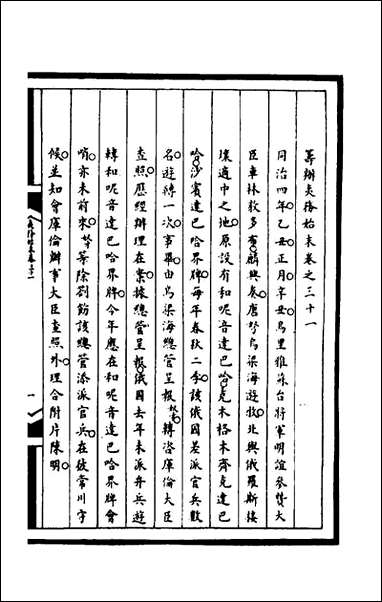 籌辦夷務始末卷之三十一
同治四年乙丑正月辛丑烏里雅蘇台將軍明誼參贊大
臣車林敦多布麟興奏唐努烏梁海遊牧北與俄羅斯接
壤適中之地原設有和呢音達巴哈克木格木齊克達巴
哈沙賓達巴哈界牌每年春秋二季該俄國差派官兵數
名遊轉一次事畢由烏梁海總管呈報奴才等轉咨庫倫大臣
查照應經辦理在案據總管呈報俄國去年未派弁兵遊
轉和呢音達巴哈界牌今年應在和呢音達巴哈界牌會
哨亦未前來奴才等除劄飭該總管添派官兵在彼常川守
候並知會庫倫辦事大臣查照外理合附片陳明
一